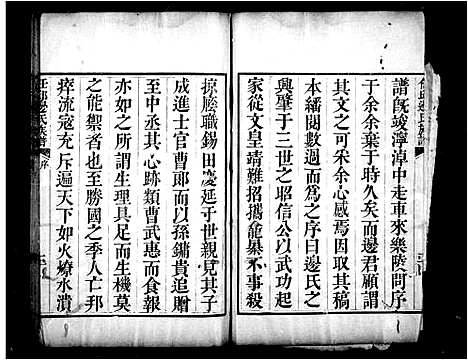 任邱邊氏族譜
譜既竣濘淖中走車來樂陵問序
于余余棄于時久矣而邊君顧謂
其文之可采余心感焉因取其稿
本繙閱數過而為之序曰邊氏之
興肇于三世之昭信公以武功起
家從文皇靖難招攜龕暴不事殺
掠廕職錫田慶延于世親見其子
成進士官曹郎而以孫鏞貴追贈
至中丞其心跡類曹武惠而其報
亦如之所謂生理具足而生機莫
之能禦者也至勝國之季人亡邦
瘁流寇充斥遍天下如火燎水潰
任邱邊氏族譜
序